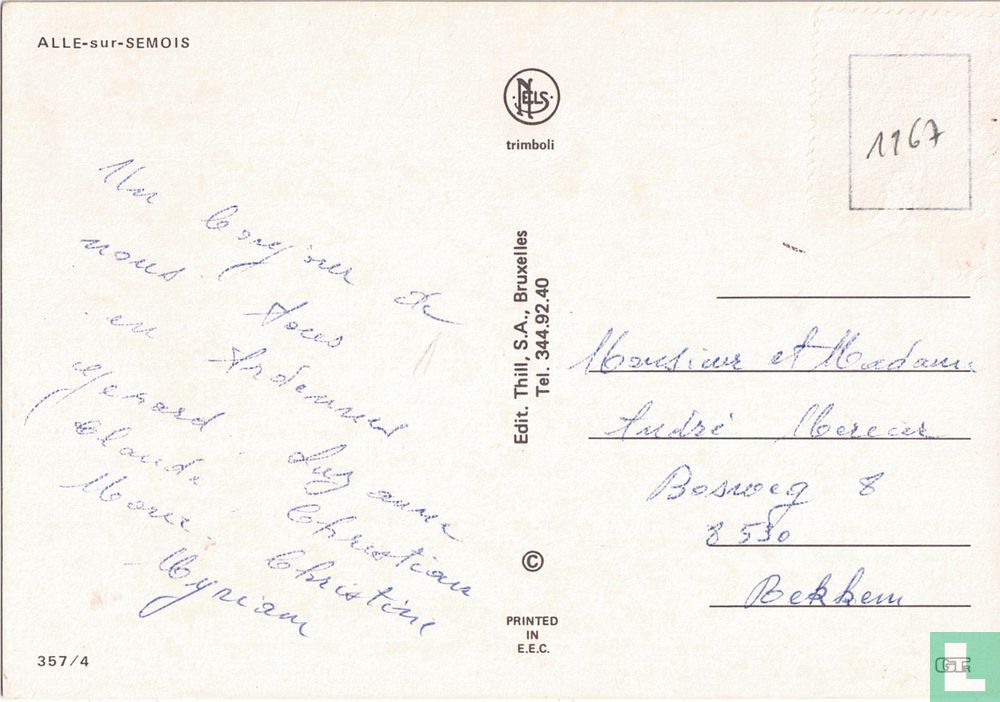 ALLE-sur-SEMOIS
NELS
trimboli
1967
Un bonjour de
nous tous
en Ardennes
Gerard Suzanne
Claude Christian
Marie Christine
Myriam
Edit. Thill, S.A., Bruxelles
Tel. 344.92.40
Monsieur et Madame
André Mercier
Bosweg 8
8530
Bekkem
©
PRINTED
IN
E.E.C.
357/4
L